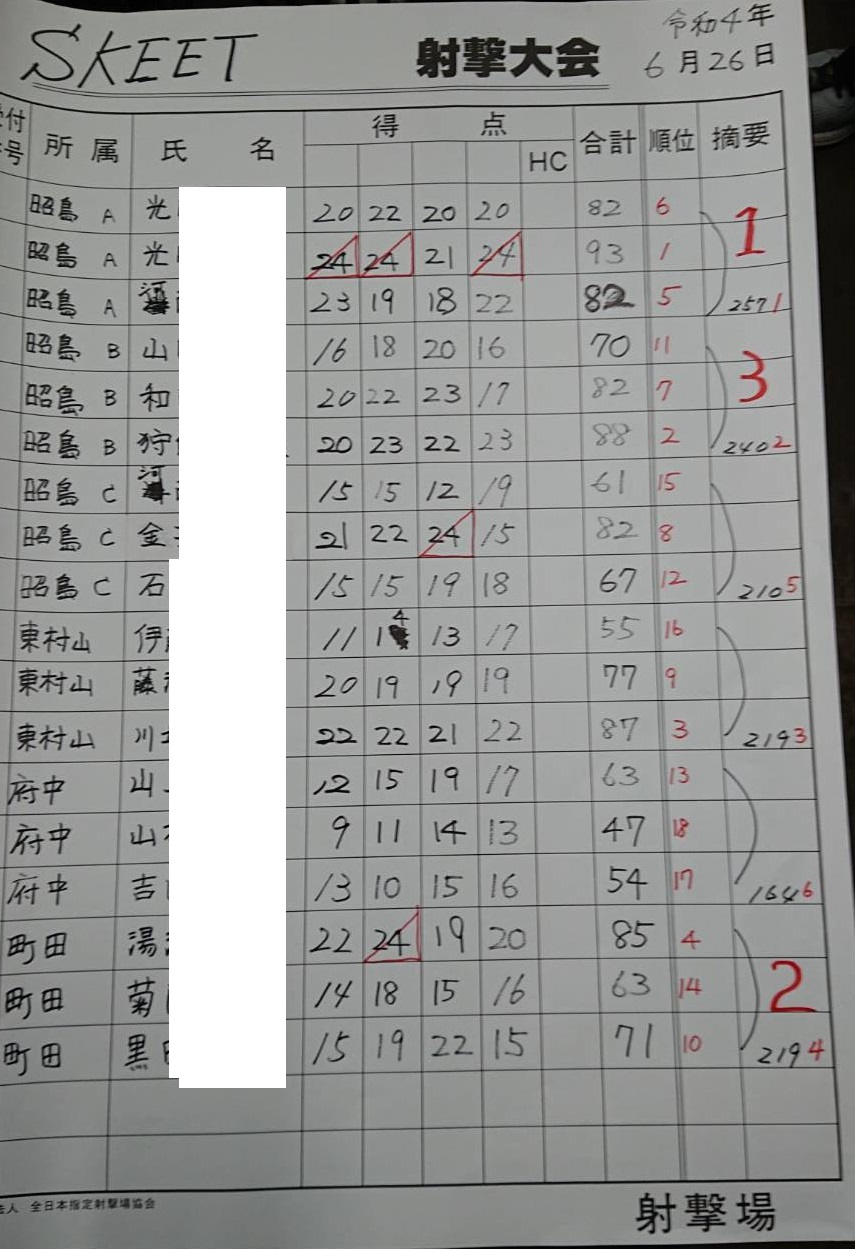 SKEET 射撃大会 令和4年
6月26日
付 所属 氏名 得点 合計 順位 摘要
号 HC
昭島 A 光 20 22 20 20 82 6
昭島 A 光 24 24 21 24 93 1 1
昭島 A 河 23 19 18 22 82 5 257 1
昭島 B 山 16 18 20 16 70 11
昭島 B 和 20 22 23 17 82 7 3
昭島 B 狩 20 23 22 23 88 2 240 2
昭島 C 河 15 15 12 19 61 15
昭島 C 金 21 22 24 15 82 8
昭島 C 石 15 15 19 18 67 12 210 5
東村山 伊 11 14 13 17 55 16
東村山 藤 20 19 19 19 77 9
東村山 川 22 22 21 22 87 3 219 3
府中 山 12 15 19 17 63 13
府中 山 9 11 14 13 47 18
府中 吉 13 10 15 16 54 17 164 6
町田 湯 22 24 19 20 85 4
町田 菊 14 18 15 16 63 14 2
町田 黒 15 19 22 15 71 10 219 4
法人 全日本指定射撃場協会 射撃場